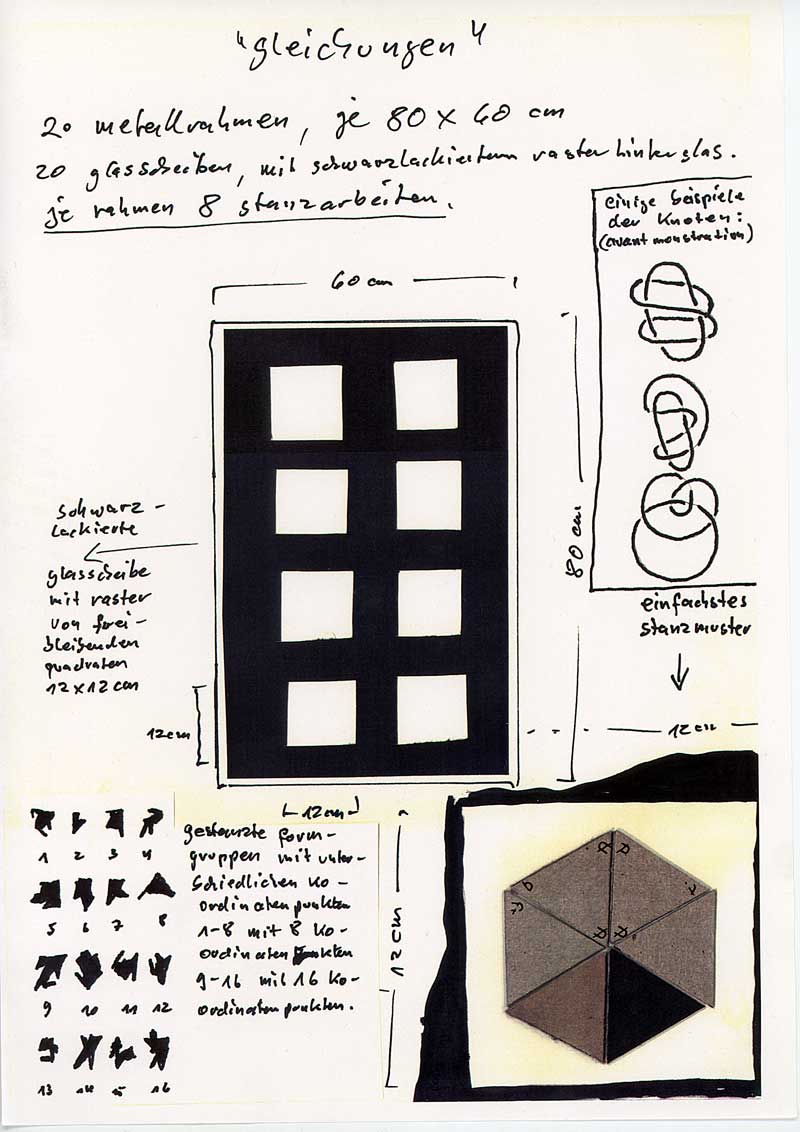 "gleichungen"
20 metallrahmen, je 80 x 60 cm
20 glasscheiben, mit schwarzlackiertem raster hinterglas.
je rahmen 8 stanzarbeiten.
einige beispiele
der Knoten:
(avant monstration)
60 cm
80 cm
schwarz-
lackierte
glasscheibe
mit raster
von frei-
bleibenden
quadraten
12 x 12 cm
12cm
12cm
einfachstes
stanzmuster
12cm
12cm
gestanzte form-
gruppen mit unter-
schiedlichen ko-
ordinatenpunkten
1-8 mit 8 ko-
ordinatenpunkten
9-16 mit 16 ko-
ordinatenpunkten.
1 2 3 4
5 6 7 8
9 10 11 12
13 14 15 16